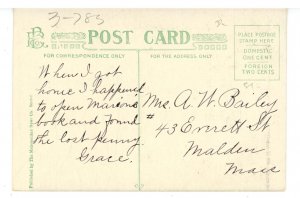 3-785
POST CARD
FOR CORRESPONDENCE ONLY
FOR THE ADDRESS ONLY
PLACE POSTAGE
STAMP HERE
DOMESTIC
ONE CENT
FOREIGN
TWO CENTS
When I got
home I happened
to open Marions
book and found
the lost penny.
Grace.
Mrs. A. W. Bailey
# 43 Everett St
Malden
Mass